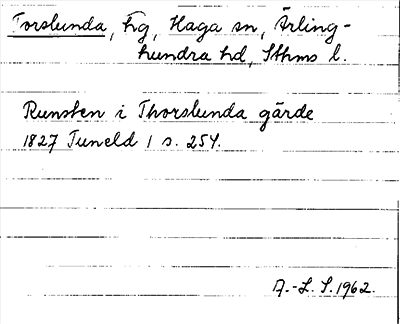 Torslunda, hg, Haga sn, Ärling-
hundra hd, Sthms l.
Runsten i Thorslunda gärde
1827 Tuneld 1 s. 254.
A.-L. S. 1962.